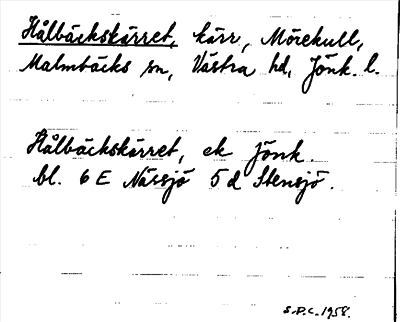 Hålbäckskärret, kärr, Mörekull,
Malmbäcks sn, Västra hd, Jönk. l.
Hålbäckskärret, ek Jönk.
bl. 6 E Nässjö 5 d Stensjö.
S.P.C. 1958.